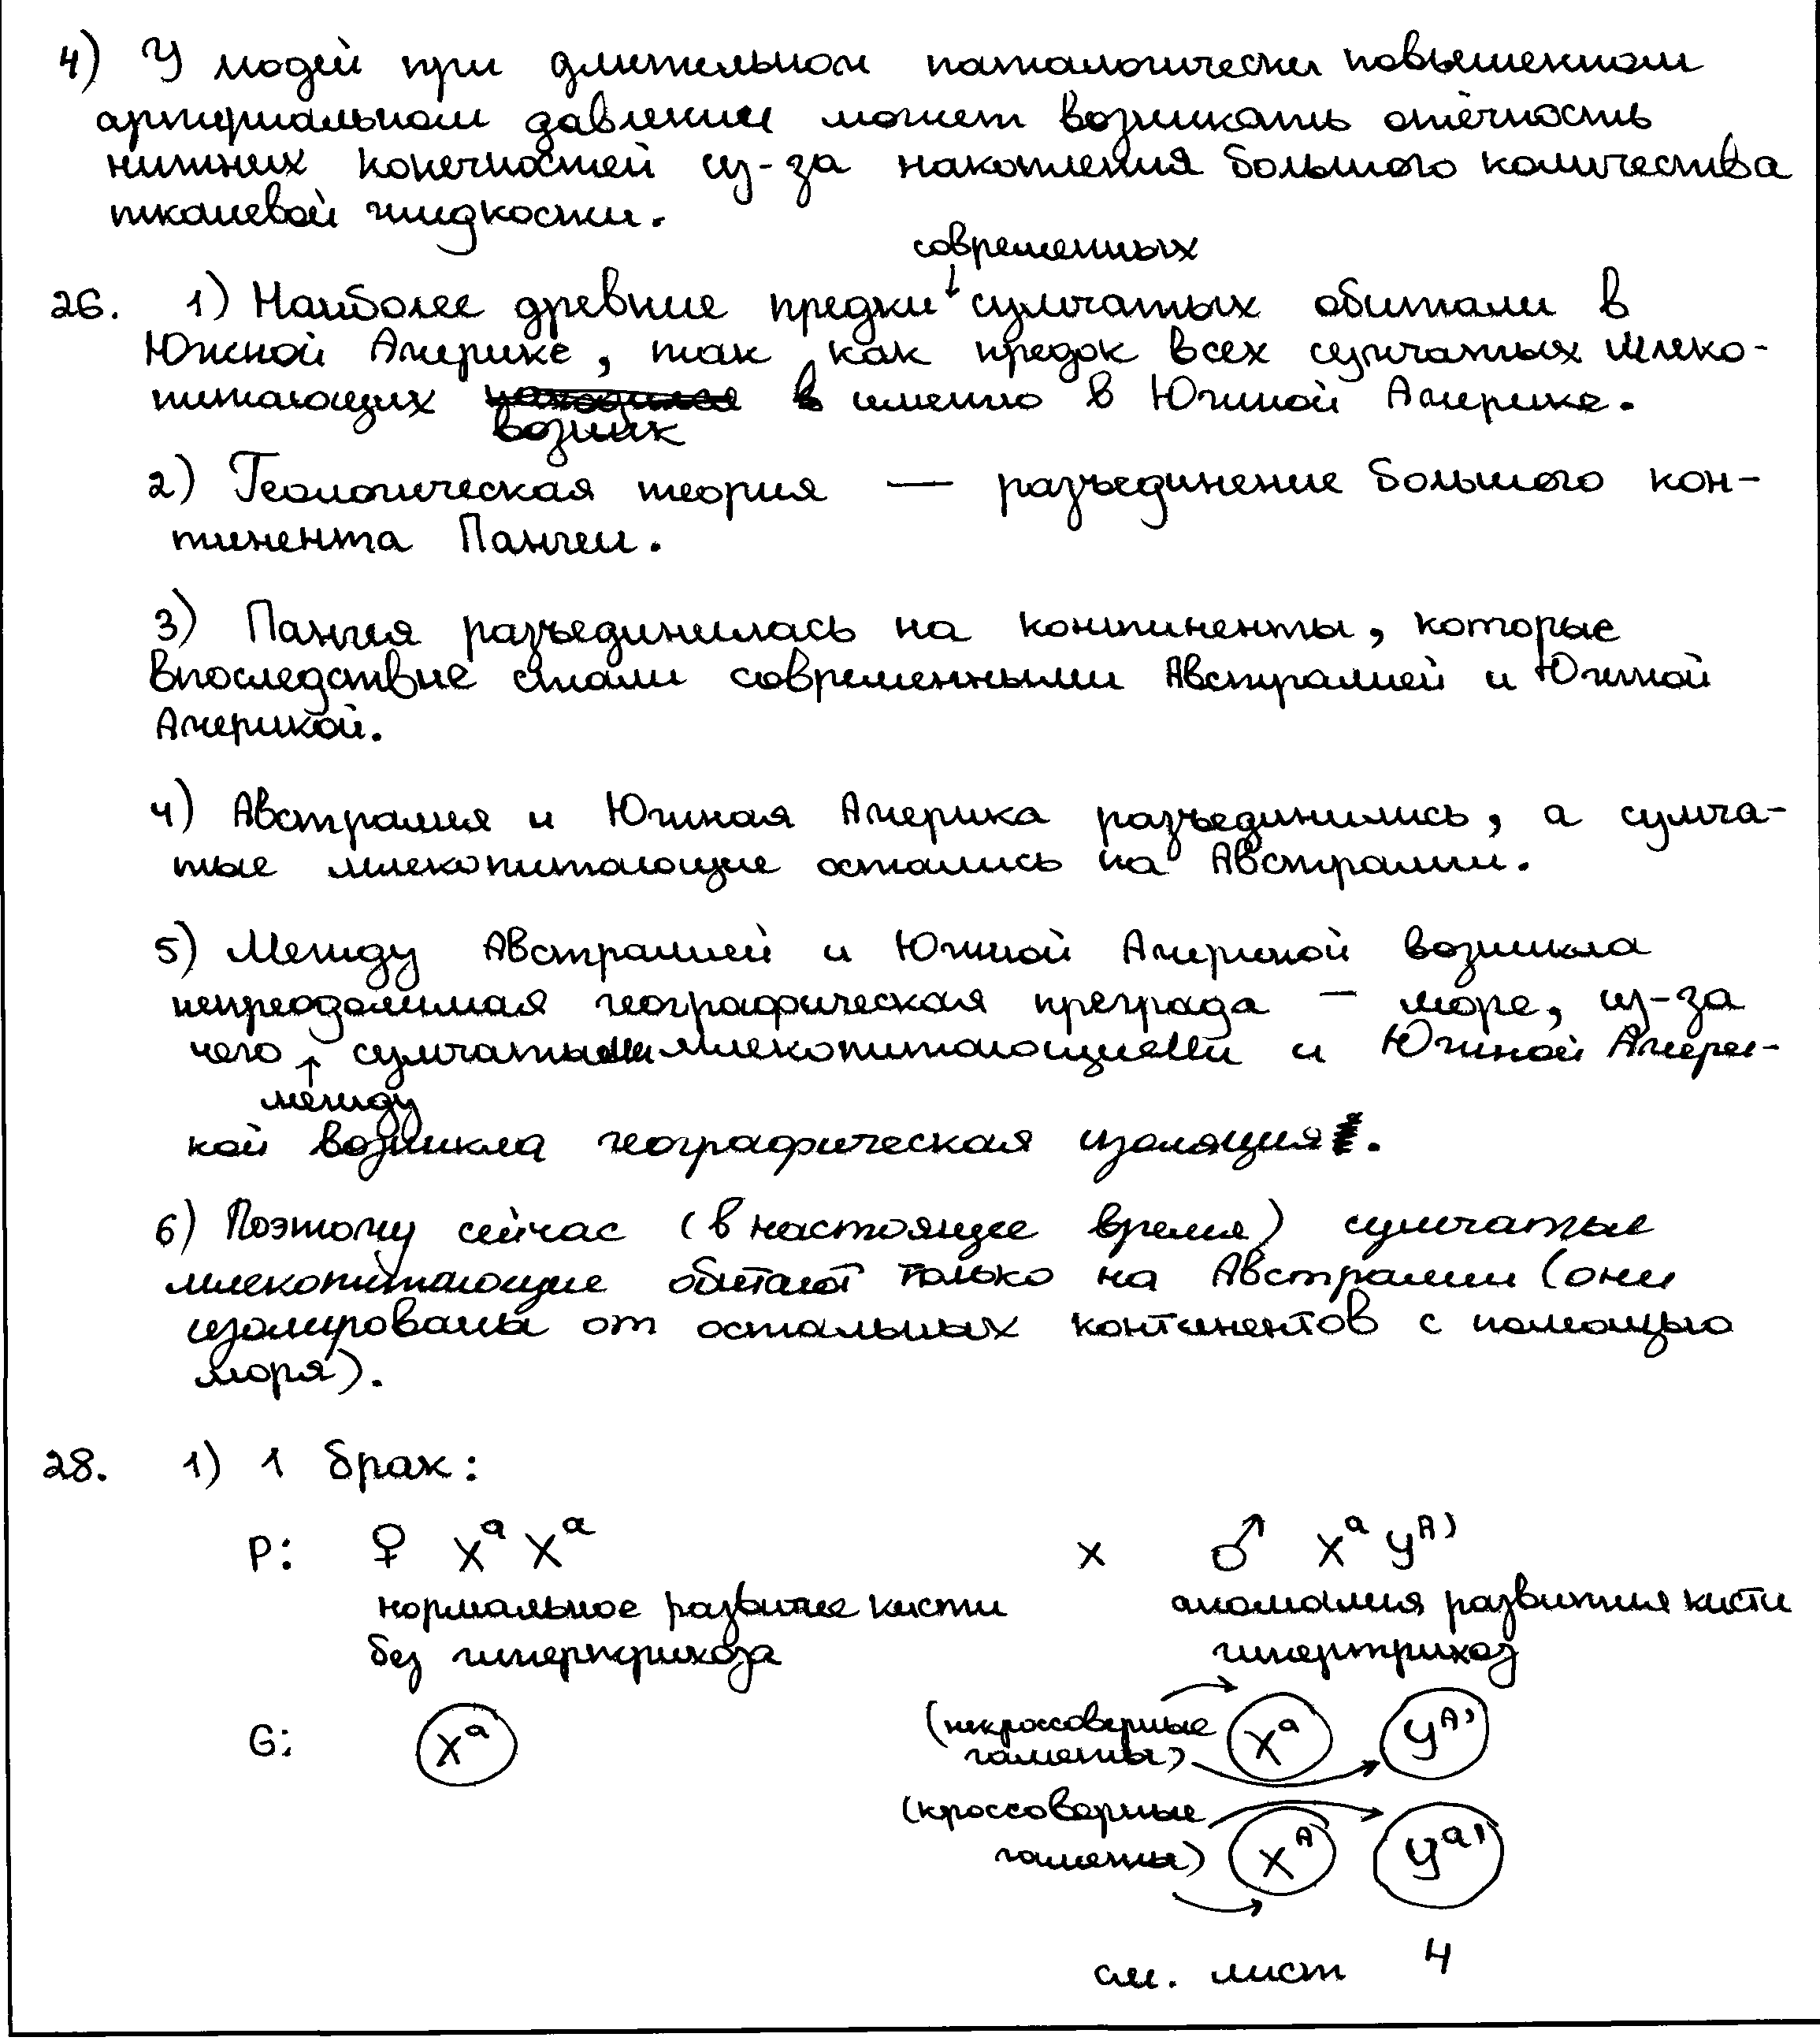 4) У людей при длительном патологически повышенном
артериальном давлении может возникать отёчность
нижних конечностей из-за накопления большого количества
тканевой жидкости.
современных
26. 1) Наиболее древние предки ↓ сумчатых обитали в
Южной Америке, так как предок всех сумчатых млеко-
питающих находился в именно в Южной Америке.
возник
2) Геологическая теория — разъединение большого кон-
тинента Пангеи.
3) Пангея разъединилась на континенты, которые
впоследствие стали современными Австралией и Южной
Америкой.
4) Австралия и Южная Америка разъединились, а сумча-
тые млекопитающие остались на Австралии.
5) Между Австралией и Южной Америкой возникла
непреодолимая географическая преграда – море, из-за
чего ↑ сумчатыми млекопитающими и Южной Амери-
между
кой возникла географическая изоляция.
6) Поэтому сейчас (в настоящее время) сумчатые
млекопитающие обитают только на Австралии (они
изолированы от остальных континентов с помощью
моря).
28. 1) 1 брак:
P: ♀ Xᵃ Xᵃ x ♂ Xᵃ Yᴬ⁾
нормальное развитие кисти аномалия развития кисти
без гипертрихоза гипертрихоз
G: Xᵃ (некроссоверные Xᵃ Yᴬ⁾
гаметы)
(кроссоверные
гаметы) Xᴬ Yᵃ⁾
см. лист 4